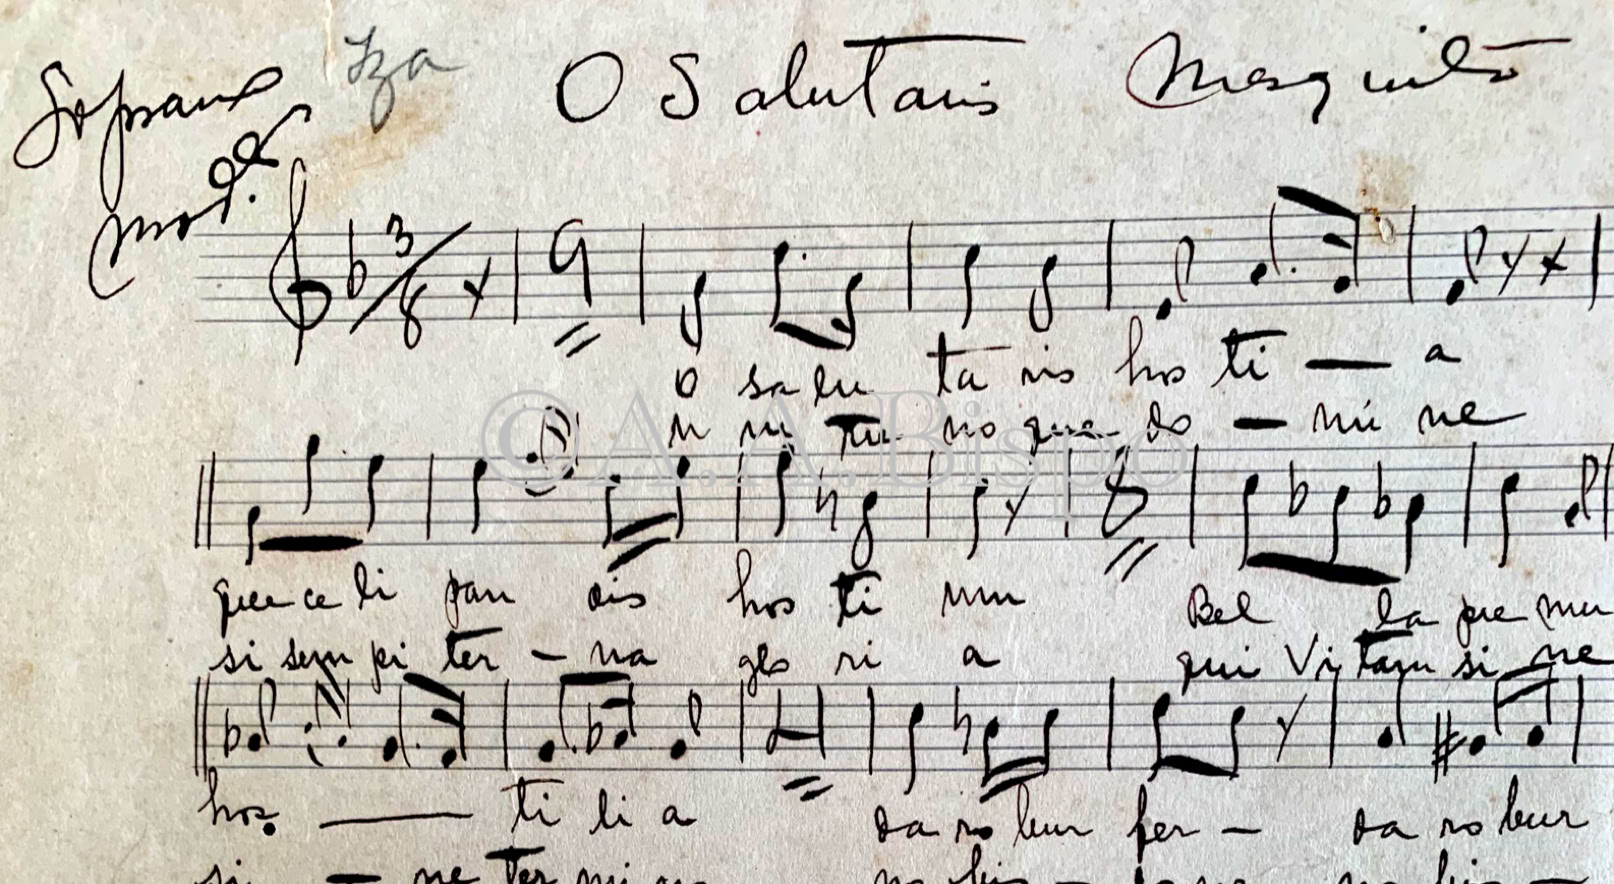 Soprano Iza O Salutaris Mesquita
mod.to
3/8
9
o sa lu ta ris hos ti — a
u ni tri no que do — mi ne
©A.A.Bispo
8
quae ce li pan dis hos ti um Bel la pre mu
si sem pi ter – na glo ri a qui Vi tam si ne
hos. — ti li a da ro bur fer – da ro bur
si — ne ter mi no no bis –